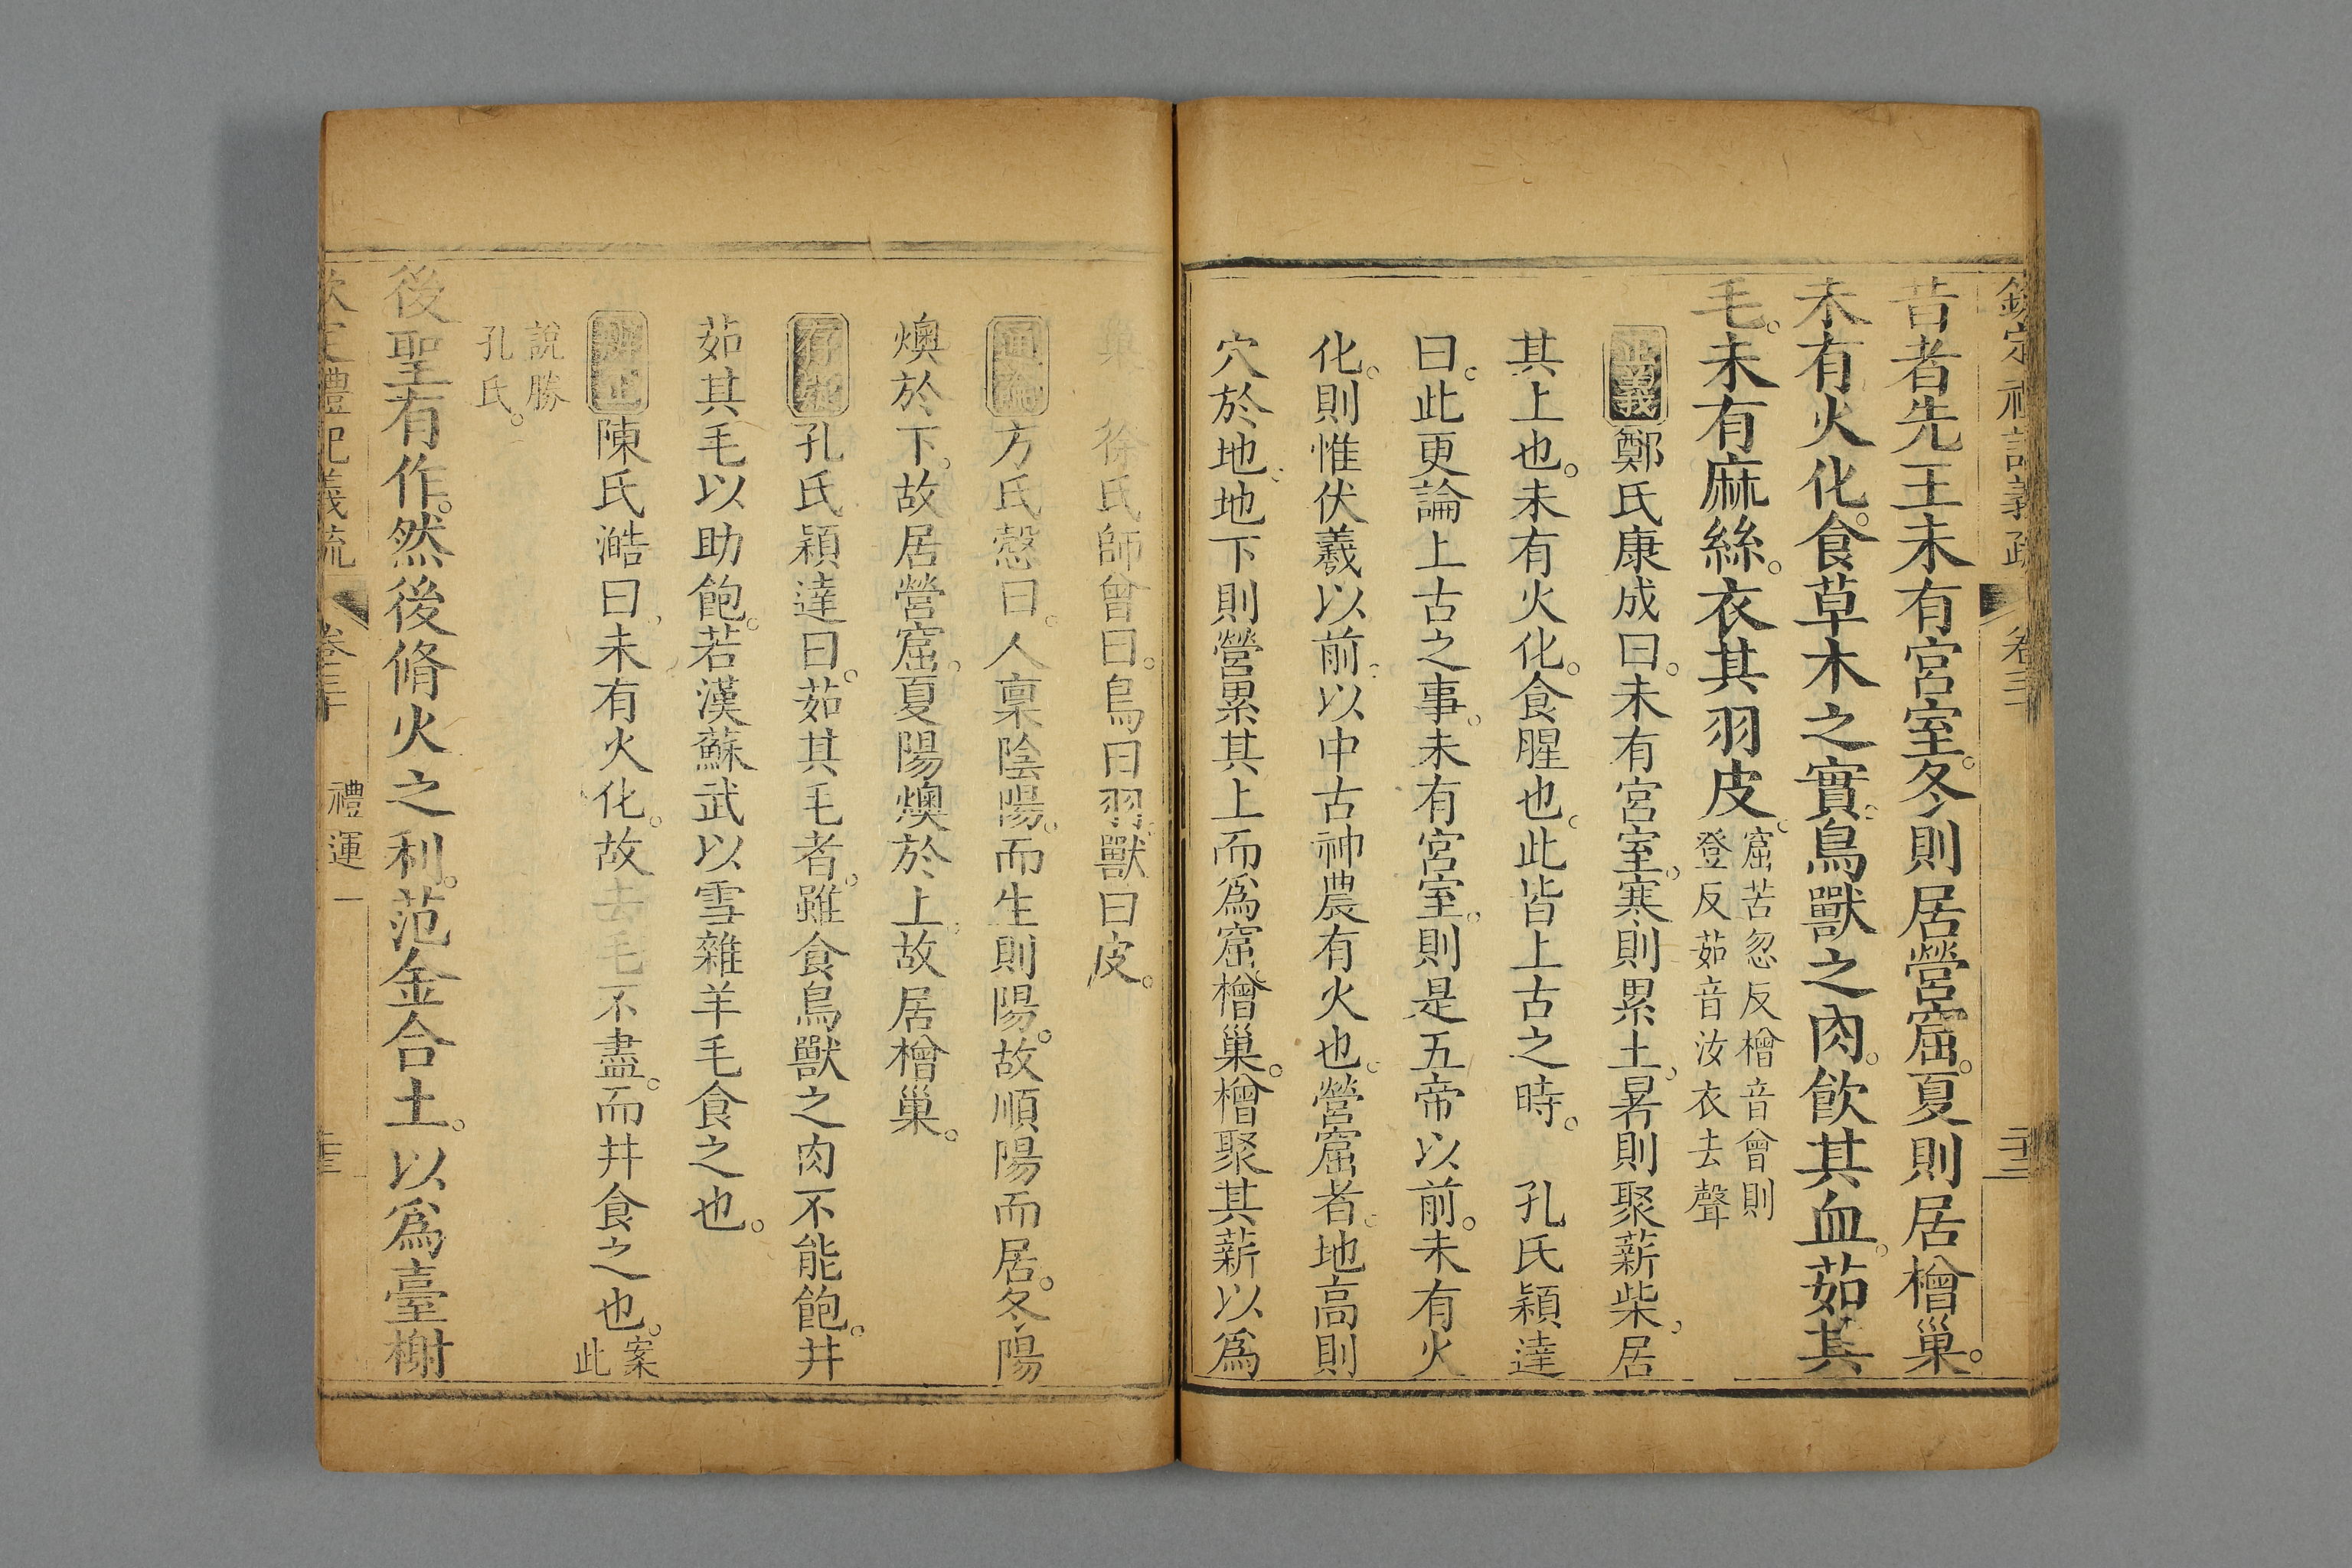 欽定禮記義疏 卷三十 二十二
昔者先王未有宮室。冬則居營窟。夏則居橧巢。
未有火化。食草木之實。鳥獸之肉。飲其血。茹其
毛。未有麻絲。衣其羽皮。
窟苦忽反橧音曾則
登反茹音汝衣去聲
正義鄭氏康成曰。未有宮室。寒則累土。暑則聚薪柴。居
其上也。未有火化。食腥也。此皆上古之時。 孔氏穎達
曰。此更論上古之事。未有宮室。則是五帝以前。未有火
化。則惟伏羲以前。以中古神農有火也。營窟者。地高則
穴於地。地下則營累其上而爲窟。橧巢。橧聚其薪以爲
巢 徐氏師曾曰。鳥曰羽。獸曰皮。
通論方氏慤曰。人稟陰陽。而生則陽。故順陽而居。冬陽
燠於下。故居營窟。夏陽燠於上。故居橧巢。
存疑孔氏穎達曰。茹其毛者。雖食鳥獸之肉不能飽。井
茹其毛以助飽。若漢蘇武以雪雜羊毛食之也。
辨正陳氏澔曰。未有火化。故去毛不盡。而井食之也。
案此
說勝
孔氏。
後聖有作。然後脩火之利。范金合土。以爲臺榭
欽定禮記義疏 卷三十 禮運一